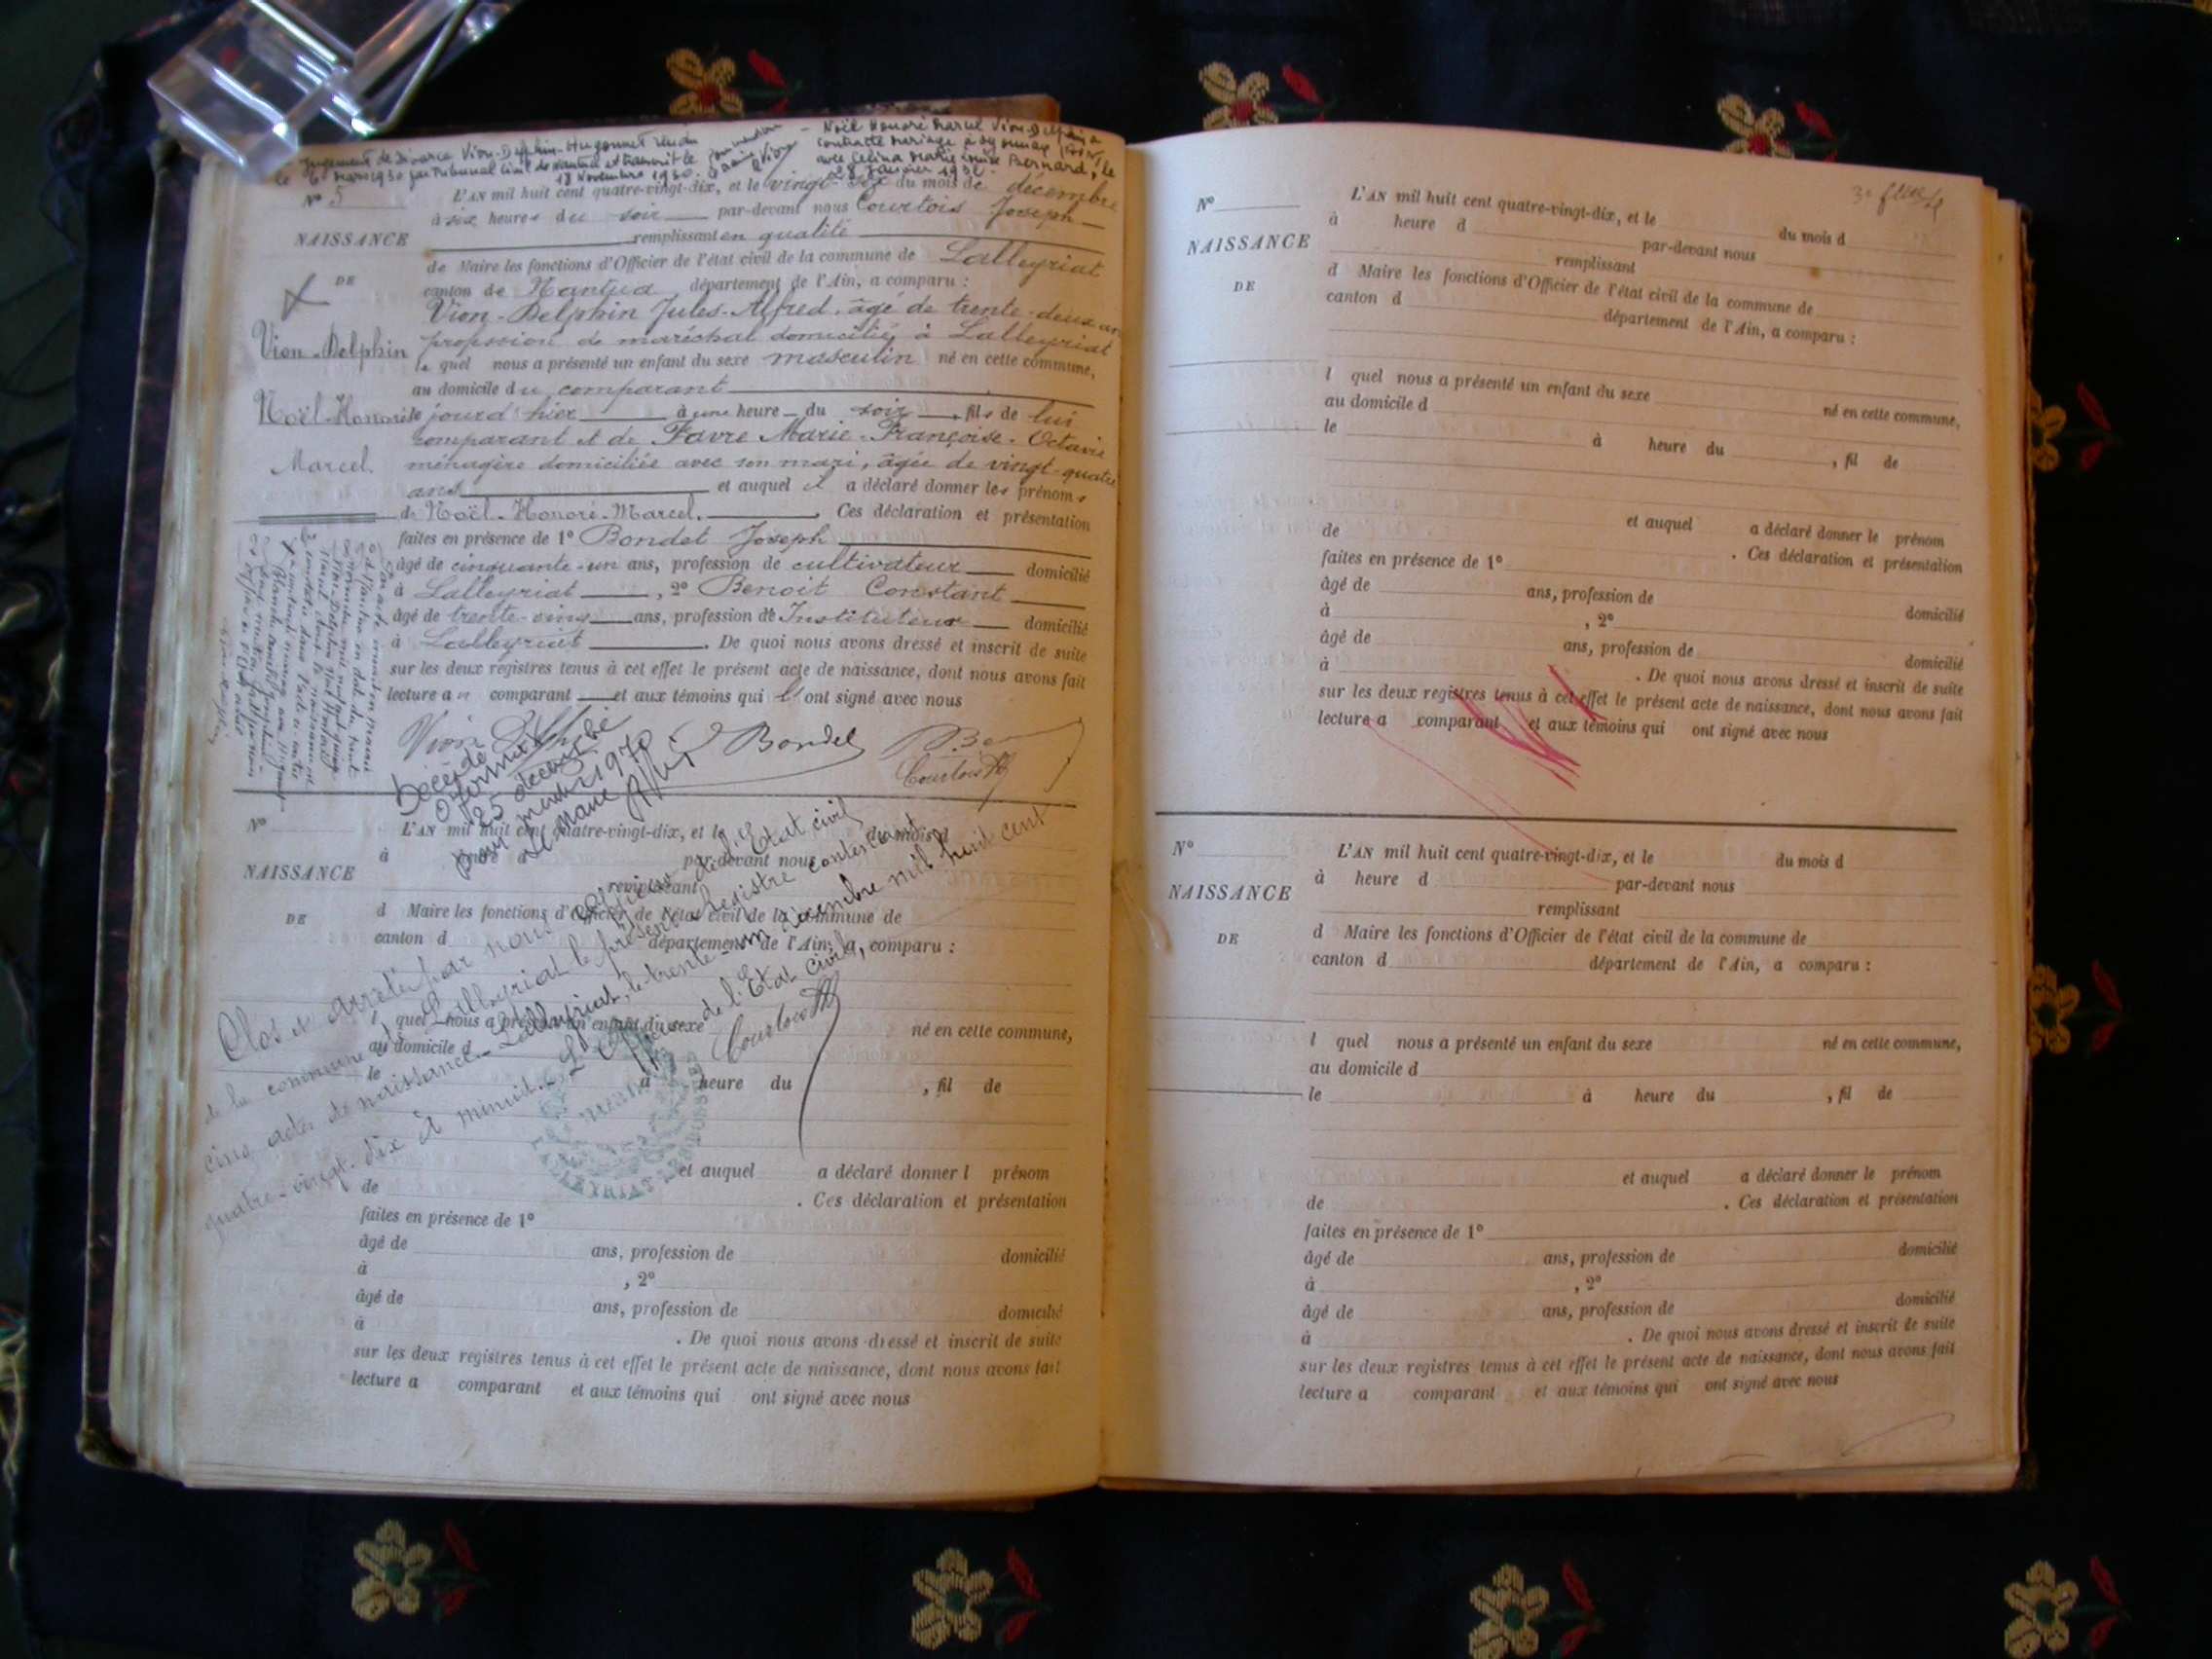 Jugement de divorce Vion-Delphin-Hugonnet rendu
le 6 Mars 1930 par Tribunal Civil de Nantua et transcrit le
18 Novembre 1930.
Noël Honoré Marcel Vion-Delphin a
contracté mariage à Oyonnax (Ain)
avec Célina Marie Louise Bernard, le
28 Janvier
N° 5
NAISSANCE
DE
Vion-Delphin
Noël-Honoré
Marcel
L'AN mil huit cent quatre-vingt-dix, et le vingt-six du mois de décembre
à six heures du soir par-devant nous Courtois Joseph
remplissant en qualité
de Maire les fonctions d'Officier de l'état civil de la commune de Lalleyriat
canton de Nantua département de l'Ain, a comparu :
Vion-Delphin Jules-Alfred, âgé de trente-deux ans
profession de maréchal domicilié à Lalleyriat
le quel nous a présenté un enfant du sexe masculin né en cette commune,
au domicile du comparant
le jourd'hier à une heure du soir, fils de lui
comparant et de Favre Marie-Françoise-Octavie
ménagère domiciliée avec son mari, âgée de vingt-quatre
ans et auquel il a déclaré donner les prénoms
de Noël-Honoré-Marcel. Ces déclaration et présentation
faites en présence de 1° Bondet Joseph
âgé de cinquante-un ans, profession de cultivateur domicilié
à Lalleyriat, 2° Benoit Constant
âgé de trente-cinq ans, profession de Instituteur domicilié
à Lalleyriat. De quoi nous avons dressé et inscrit de suite
sur les deux registres tenus à cet effet le présent acte de naissance, dont nous avons fait
lecture au comparant et aux témoins qui ont signé avec nous
Vion Bondet
Courtois
Décédé
à Oyonnax
25 décembre
1970
Le Maire
N°
NAISSANCE
DE
L'AN mil huit cent quatre-vingt-dix, et le du mois d
à heure d par-devant nous
remplissant
d Maire les fonctions d'Officier de l'état civil de la commune de
canton d département de l'Ain, a comparu :
l quel nous a présenté un enfant du sexe né en cette commune,
au domicile d
le à heure du , fil de
et auquel a déclaré donner l prénom
de . Ces déclaration et présentation
faites en présence de 1°
âgé de ans, profession de domicilié
à , 2°
âgé de ans, profession de domicilié
à . De quoi nous avons dressé et inscrit de suite
sur les deux registres tenus à cet effet le présent acte de naissance, dont nous avons fait
lecture a comparant et aux témoins qui ont signé avec nous
Clos et arrêté par nous officier de l'Etat civil
de la commune de Lalleyriat le présent registre contenant
cinq actes de naissance. Lalleyriat, le trente-un décembre mil huit cent
quatre-vingt-dix à minuit. L'Officier de l'Etat civil,
Courtois
MAIRIE
LALLEYRIAT
N°
NAISSANCE
DE
L'AN mil huit cent quatre-vingt-dix, et le du mois d
à heure d par-devant nous
remplissant
d Maire les fonctions d'Officier de l'état civil de la commune de
canton d département de l'Ain, a comparu :
l quel nous a présenté un enfant du sexe né en cette commune,
au domicile d
le à heure du , fil de
et auquel a déclaré donner le prénom
de . Ces déclaration et présentation
faites en présence de 1°
âgé de ans, profession de domicilié
à , 2°
âgé de ans, profession de domicilié
à . De quoi nous avons dressé et inscrit de suite
sur les deux registres tenus à cet effet le présent acte de naissance, dont nous avons fait
lecture a comparant et aux témoins qui ont signé avec nous
N°
NAISSANCE
DE
L'AN mil huit cent quatre-vingt-dix, et le du mois d
à heure d par-devant nous
remplissant
d Maire les fonctions d'Officier de l'état civil de la commune de
canton d département de l'Ain, a comparu :
l quel nous a présenté un enfant du sexe né en cette commune,
au domicile d
le à heure du , fil de
et auquel a déclaré donner le prénom
de . Ces déclaration et présentation
faites en présence de 1°
âgé de ans, profession de domicilié
à , 2°
âgé de ans, profession de domicilié
à . De quoi nous avons dressé et inscrit de suite
sur les deux registres tenus à cet effet le présent acte de naissance, dont nous avons fait
lecture a comparant et aux témoins qui ont signé avec nous